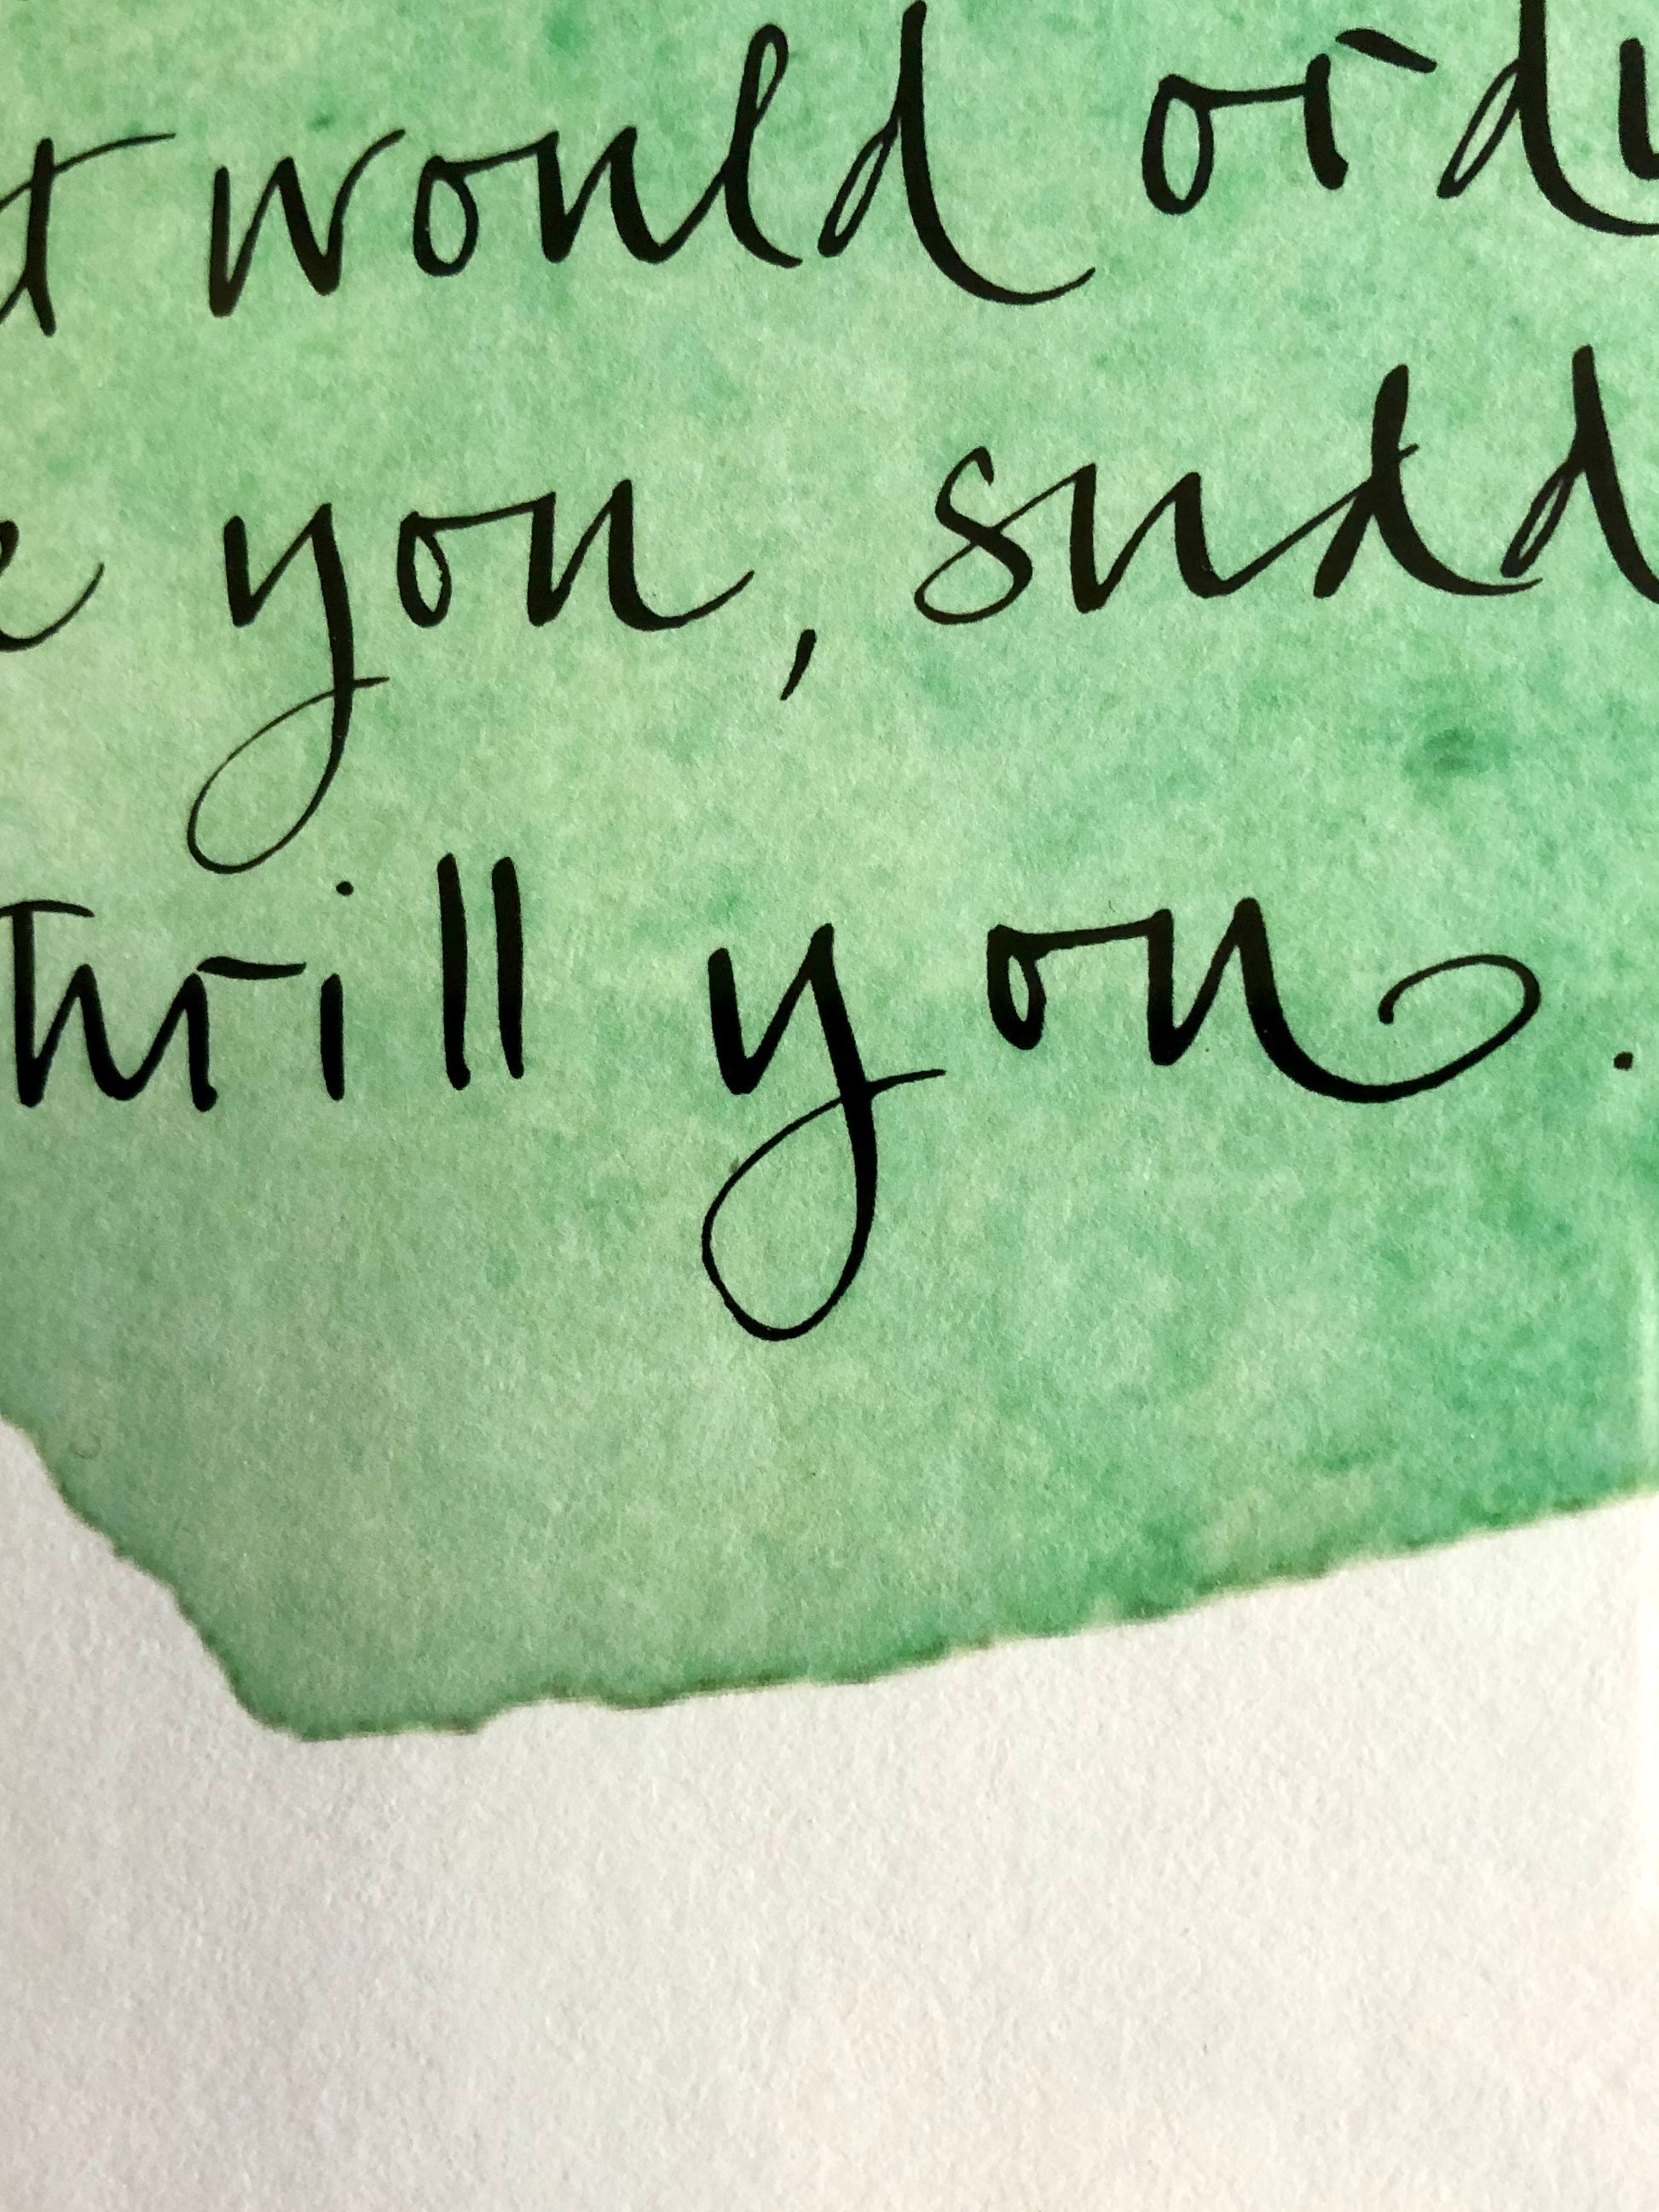 t would ordi
e you, sudd
thrill you.